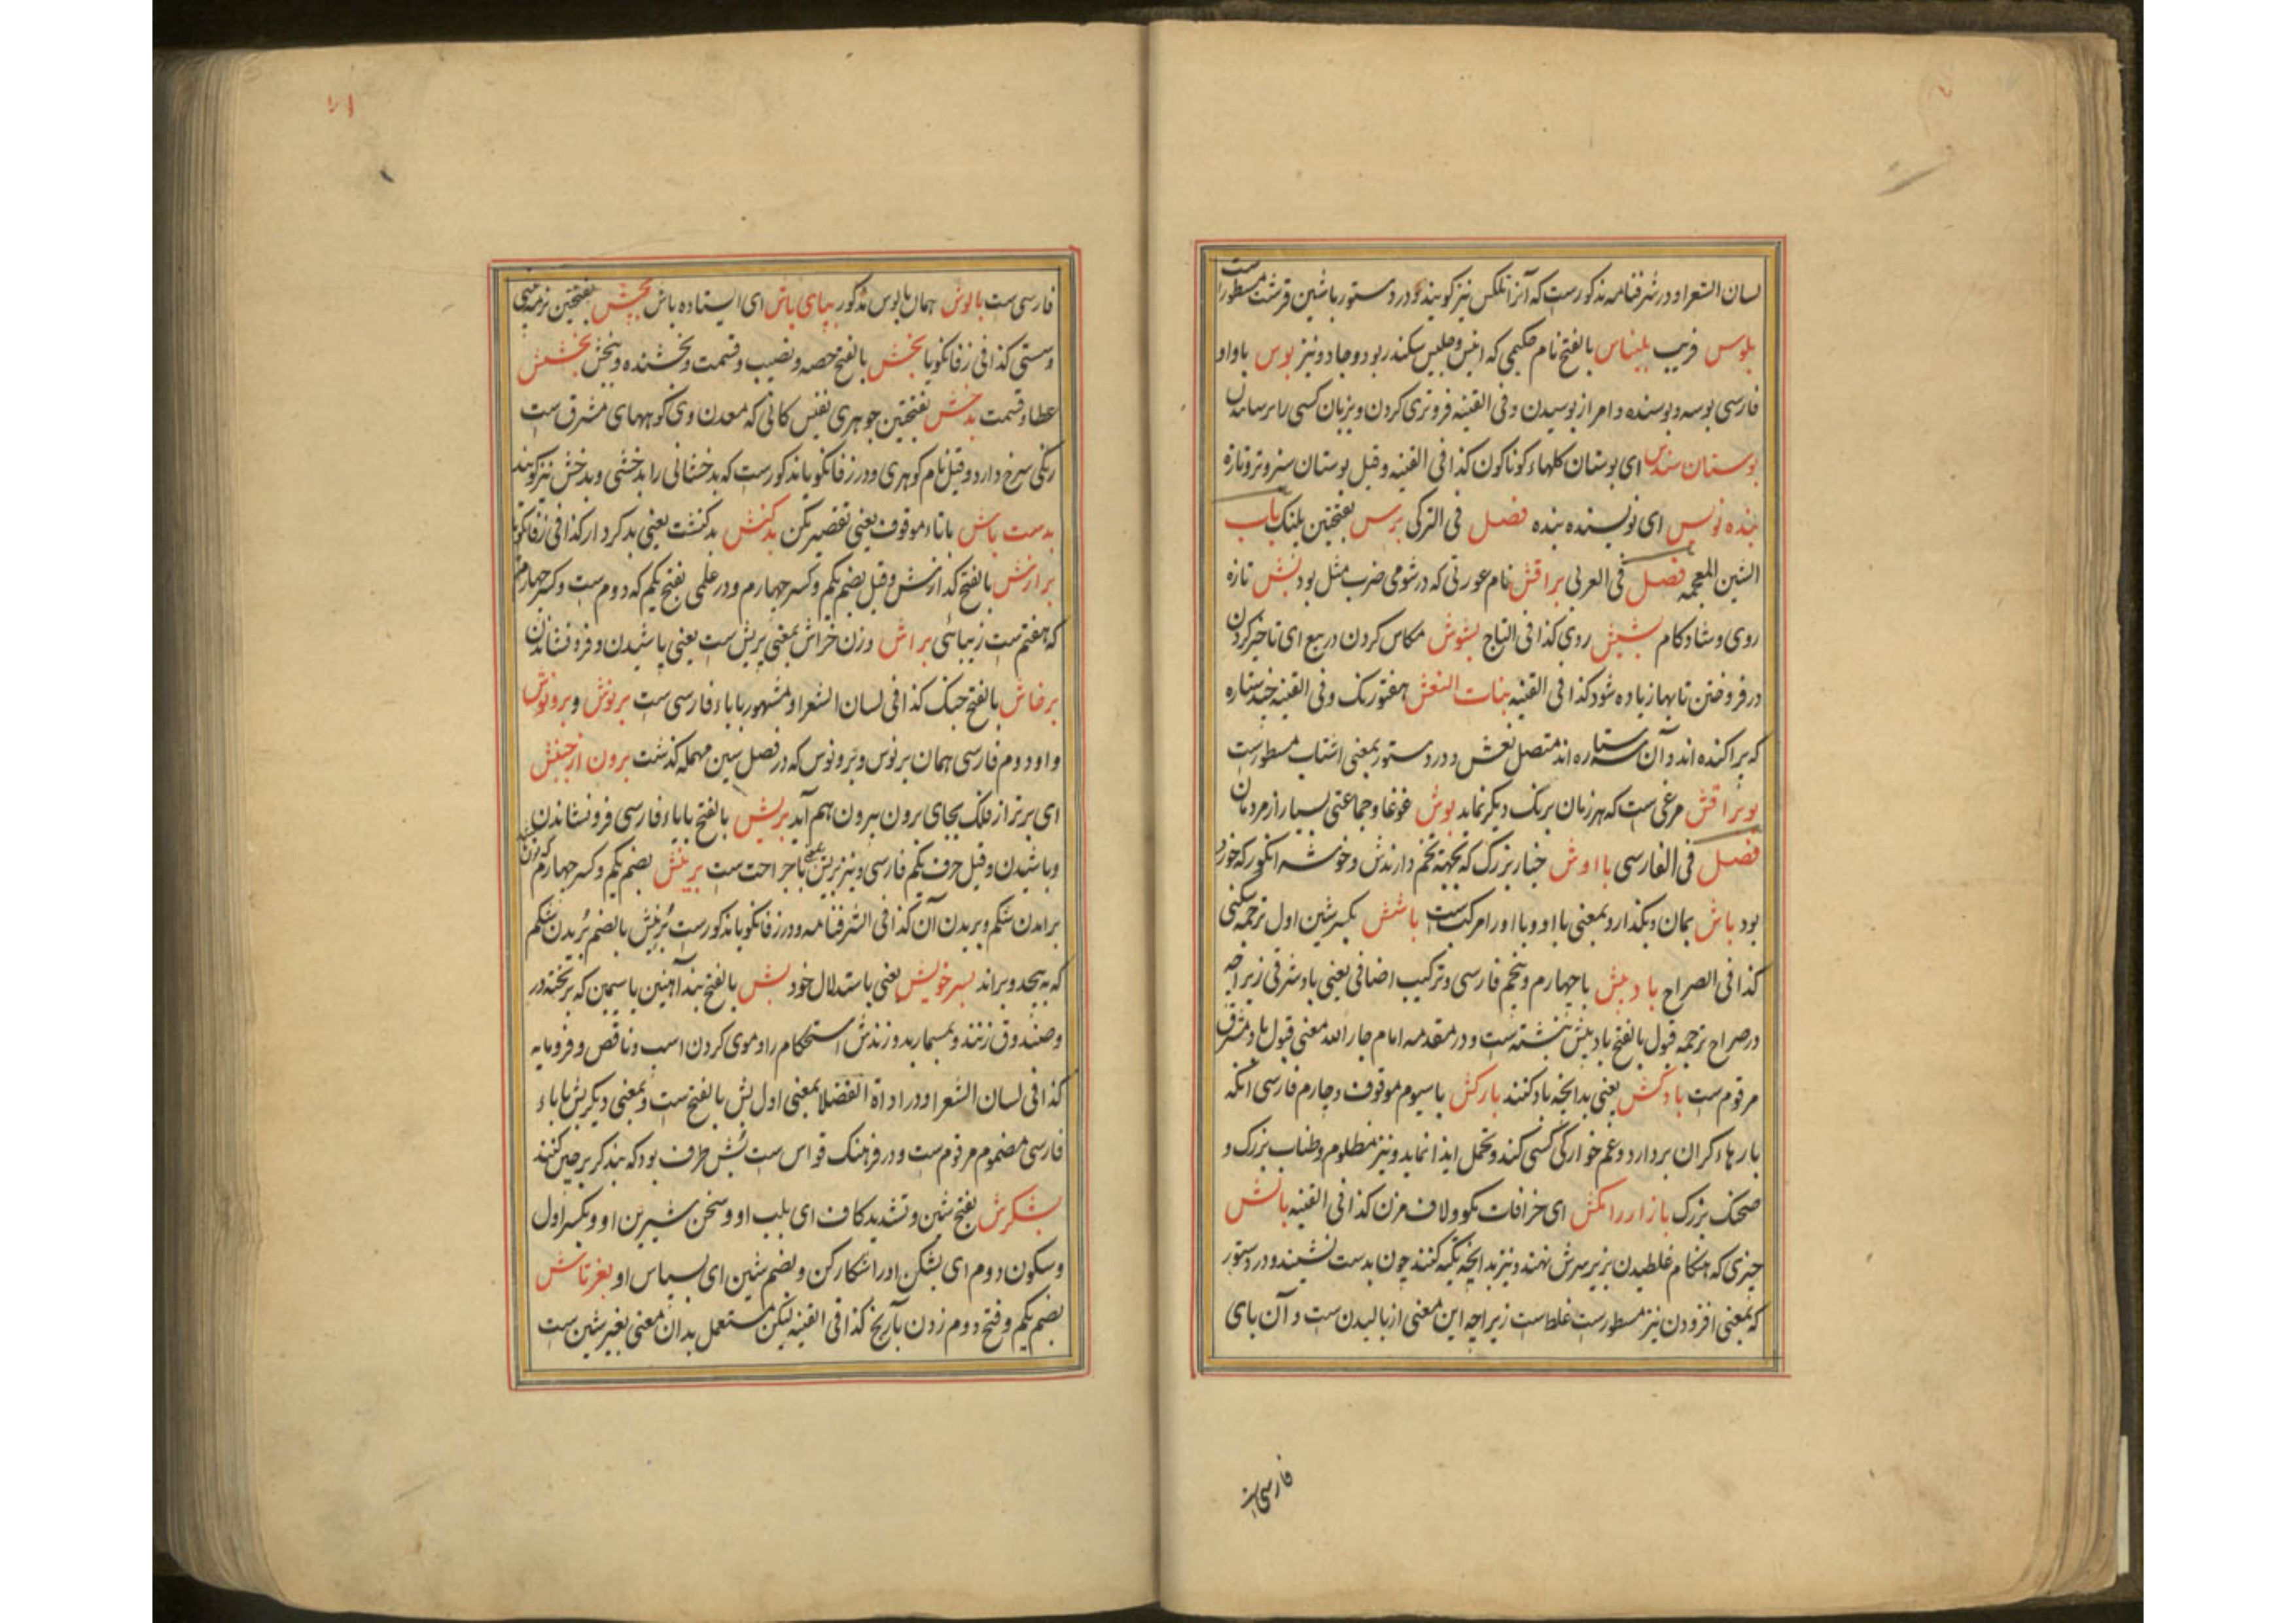 لسان الشعرا و در شرفنامه مذکورست که آنرا تلکس نیز گویند و در دستور باشین قرشت مسطورست
بلوس فریب بلیناس بالفتح نام حکیمی که انیس و جلیس سکندر بود و جادو نیز بوس باواو
فارسی بوسه و بوسنده و امر از بوسیدن و فی القنیه فروتری کردن و بزبان کسی را رسانیدن
بوستان سندس ای بوستان کلهاء کوناکون کذا فی القنیه و قیل بوستان سبز و تر و تازه
بنده نویس ای نویسنده بنده فصل فی الترکی برس بفتحتین پلنک باب
الشین المعجمه فصل فی العربی براقش نام عورتی که در شومی ضرب مثل بود بش تازه
روی و شادکام بشیش روی کذا فی التاج بشوش مکاس کردن در بیع ای تاخیر کردن
در فروختن تا بها زیاده شود کذا فی القنیه بنات النعش هفتورنک و فی القنیه چند ستاره
که پراکنده اند و آن سه ستاره اند متصل نعش و در دستور بمعنی اشتاب مسطورست
بوبراقش مرغی ست که هر زمان برنک دیکر نماید بوش غوغا و جماعتی بسیار از مردمان
فصل فی الفارسی بااوش خیار بزرک که بجهة تخم دارندش و خوشه انکور که خورد
بود باش بمان و بگذار و بمعنی با او و با او را مرکبست باشش بکسر شین اول ترجمه سکنی
کذا فی الصراح بادپیش باچهارم و پنجم فارسی و ترکیب اضافی یعنی باد شرقی زیراچه
در صراح ترجمه قبول بالفتح بادپیش نبشته است و در مقدمه امام جار الله معنی قبول باد مشرق
مرقوم ست بادکش یعنی بدانچه باد کنند بارکش باسیوم موقوف و چارم فارسی آنکه
بارهاء کران بردارد و غم خوارکی کسی کند و تحمل ایذا نماید و نیز مظلوم و طناب بزرک و
صحنک بزرک بازار در انکش ای خرافات مکو و لاف مزن کذا فی القنیه بالش
چیزی که هنکام غلطیدن بزیر سرش نهند و نیز بدانچه تکیه کنند چون بدست نشینند و در دستور
که بمعنی افزودن نیز مسطورست غلط است زیراچه این معنی از بالیدن ست و آن بای
فارسی است
فارسی ست بالوش همان بالوس مذکور بپای باش ای ایستاده باش بخش بفتحتین
و سستی کذا فی زفانکویا بخش بالفتح حصه و نصیب و قسمت و بخشنده و ببخش بخشش
عطا و قسمت بدخش بفتحتین جوهری نفیس کانی که معدن وی کوههای مشرق ست
رنکی سرخ دارد و قیل نام کوهری و در زفانکویا مذکورست که بدخشانی را بدخشی و بدخش نیز کویند
بدست باش باتاء موقوف یعنی تقصیر مکن بدکنش بدکنشت یعنی بدکردار کذا فی زفانکویا
برازش بالفتح کدازش و قیل بضم یکم و کسر چهارم و در علمی بفتح یکم که دوم ست و کسر چهارم
که هفتم ست زیبائی براش وزن خراش بمعنی پریش ست یعنی پاشیدن و فرو نشاندن
برخاش بالفتح جنک کذا فی لسان الشعرا و مشهور باباء فارسی ست برنوش و برونوش
واو دوم فارسی همان برنوس و برونوس که در فصل سین مهمله کذشت برون از جنبش
ای برتر از فلک بجای برون بیرون هم آید بریش بالفتح باباء فارسی فرو نشاندن
و پاشیدن و قیل حرف یکم فارسی و نیز بریش یعنی با جراحت ست برینش بضم یکم و کسر چهارم
براندن شکم و بریدن آن کذا فی الشرفنامه و در زفانکویا مذکورست برنش بالضم بریدن شکم
که بپیچد و براند بسر خویش یعنی باستدلال خود بش بالفتح بند آهنین یا سیمین که بر تخته در
و صندوق زنند و بمسمار بدوزندش استحکام را و موی کردن اسب و ناقص و فرومایه
کذا فی لسان الشعرا و در اداة الفضلا بمعنی اول بش بالفتح ست و بمعنی دیکر پش باباء
فارسی مضموم مرقوم ست و در فرهنک قواس ست بش طرف بود که بندکر بر چین کنند
بشکرش بفتح شین و تشدید کاف ای بلب او و سخن شیرین او و بکسر اول
و سکون دوم ای بشکن او را شکار کن و بضم شین ای بسپاس او بغرتاش
بضم یکم و فتح دوم زدن بآریخ کذا فی القنیه لیکن مستعمل بدان معنی بغیر شین ست